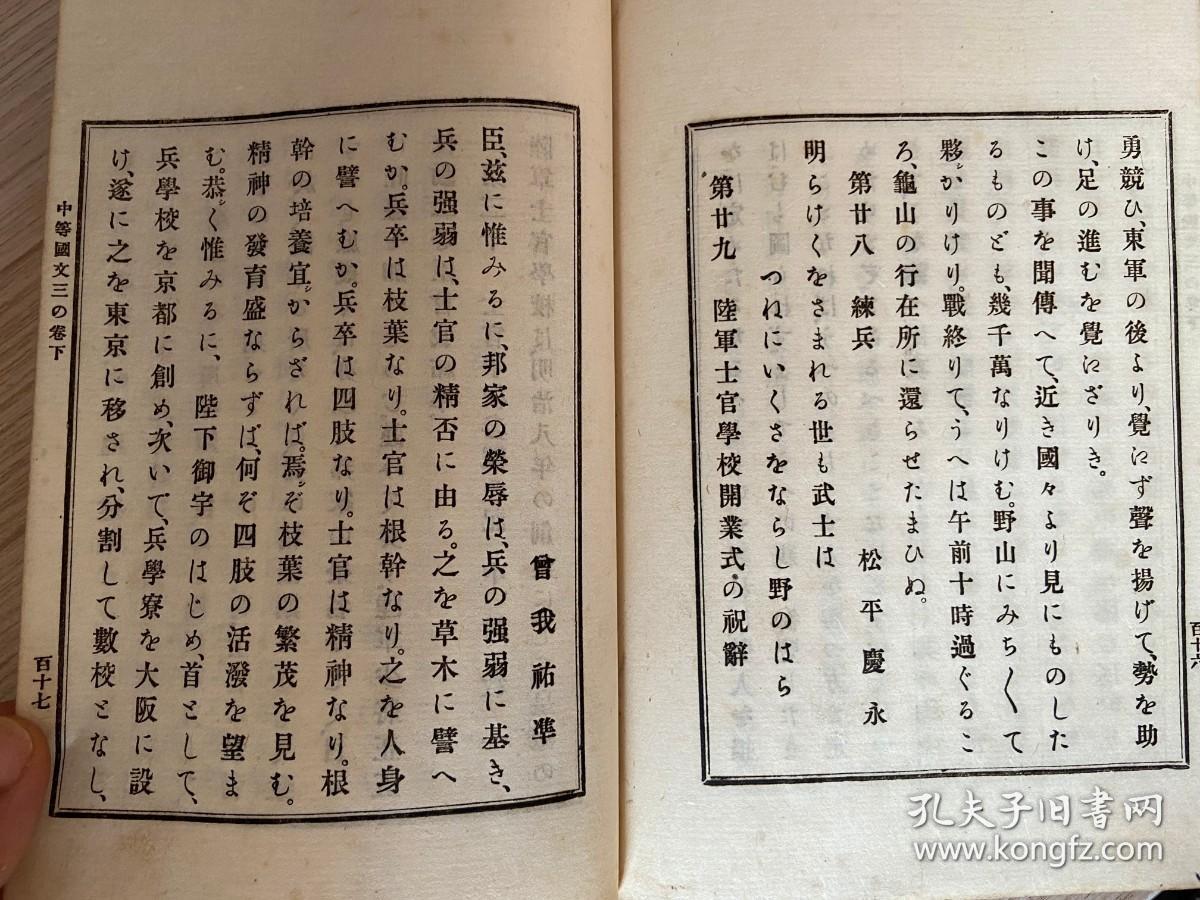 勇競ひ、東軍の後より、覺えず聲を揚げて、勢を助
け、足の進むを覺えざりき。
この事を聞傳へて、近き國々より見にものした
るものども、幾千萬なりけむ。野山にみち〳〵て
夥しかりけり。戰終りて、うへは午前十時過ぐるこ
ろ、龜山の行在所に還らせたまひぬ。
第廿八 練兵 松平慶永
明らけくをさまれる世も武士は
つねにいくさをならし野のはら
第廿九 陸軍士官學校開業式の祝辭
百十六
曾我祐準
臣、玆に惟みるに、邦家の榮辱は、兵の强弱に基き、
兵の强弱は、士官の精否に由る。之を草木に譬へ
むか。兵卒は枝葉なり。士官は根幹なり。之を人身
に譬へむか。兵卒は四肢なり。士官は精神なり。根
幹の培養宜しからざれば。焉ンぞ枝葉の繁茂を見む。
精神の發育盛ならずば、何ぞ四肢の活潑を望ま
む。恭しく惟みるに、陛下御宇のはじめ、首として、
兵學校を京都に創め、次いで、兵學寮を大阪に設
け、遂に之を東京に移され、分割して數校となし、
中等國文三の卷下
百十七
孔夫子旧书网
www.kongfz.com